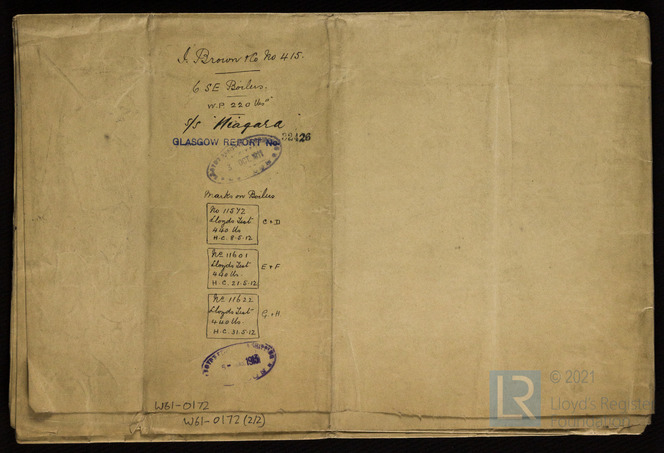 J. Brown & Co No 415.
6 SE Boilers.
W.P. 220 lbs
S/S "Niagara"
GLASGOW REPORT No 32426
OCT 1911
Marks on Boilers
No 11572
Lloyds Test
440 lbs
H.C. 8.5.12
C & D
No 11601
Lloyds Test
440 lbs
H.C. 21.5.12
E & F
No 11622
Lloyds Test
440 lbs
H.C. 31.5.12
G & H
W61-0172
W61-0172 (2/2)
© 2021
LR
Lloyd's Register
Foundation